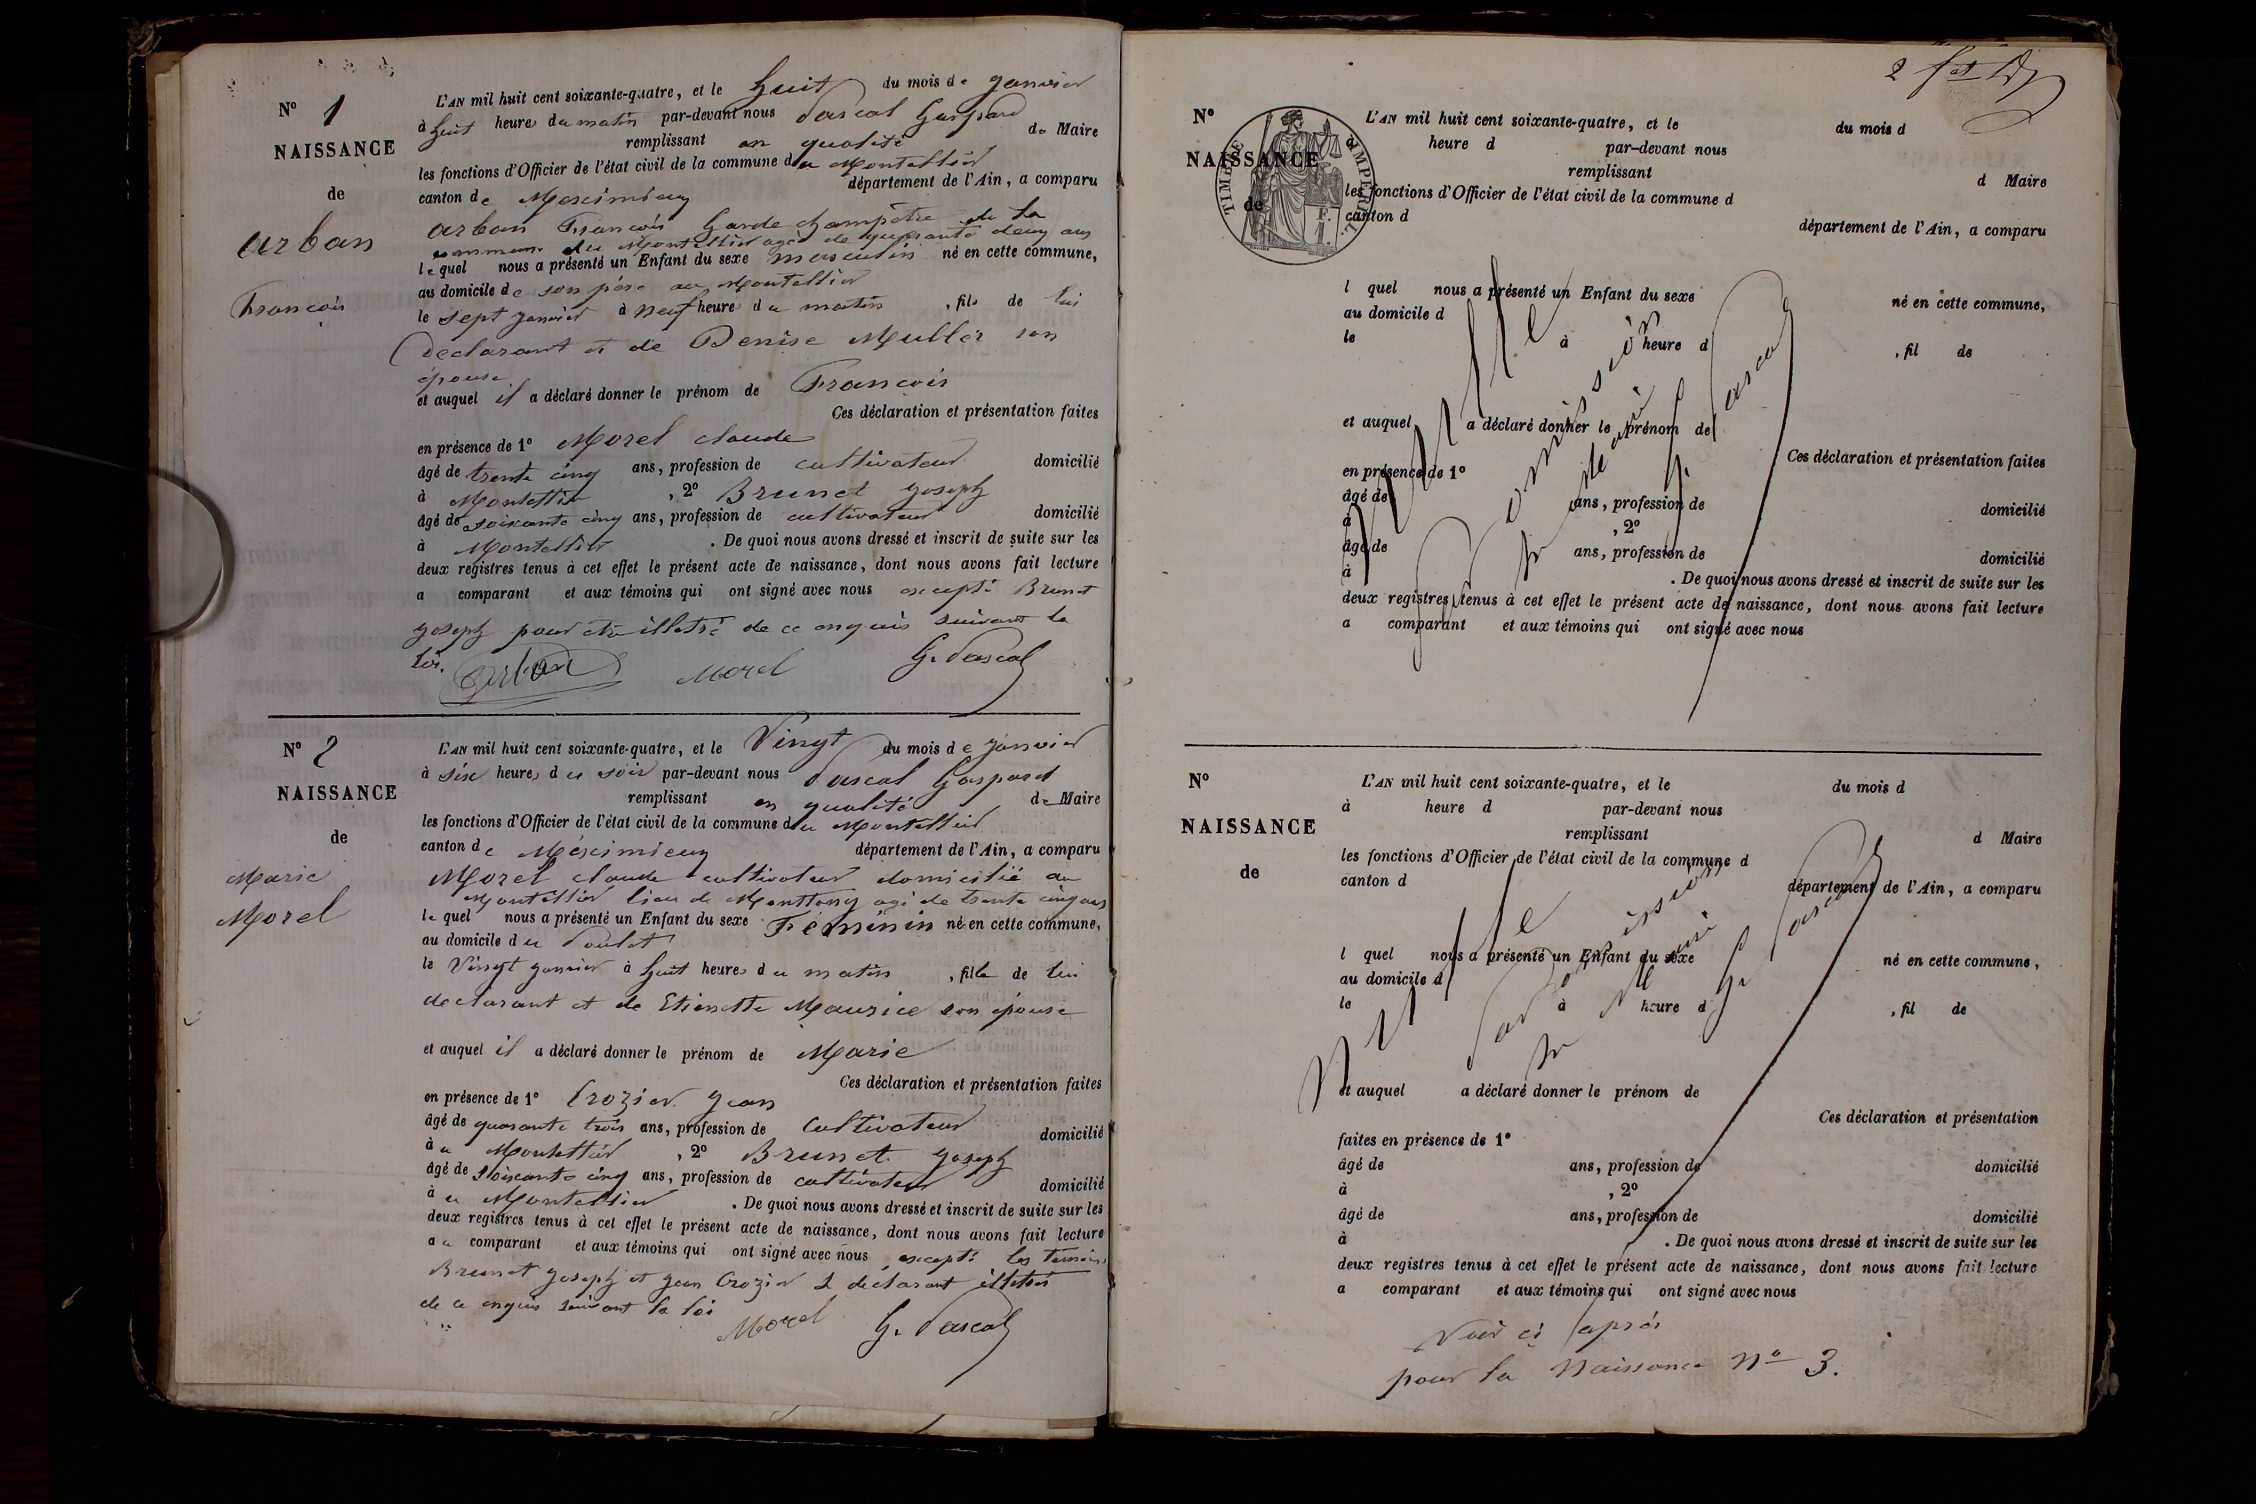 N° 1
NAISSANCE
de
Arban
François
L'AN mil huit cent soixante-quatre, et le huit du mois de janvier
à huit heures du matin par-devant nous Pascal Gaspard
remplissant en qualité de Maire
les fonctions d'Officier de l'état civil de la commune du Montellier
canton de Meximieux département de l'Ain, a comparu
Arban François Garde champêtre de la
commune du Montellier agé de quarante deux ans
lequel nous a présenté un Enfant du sexe masculin né en cette commune,
au domicile de son père au Montellier
le sept janvier à neuf heures du matin, fils de lui
declarant et de Denise Muller son
épouse
et auquel il a déclaré donner le prénom de François
Ces déclaration et présentation faites
en présence de 1° Morel claude
âgé de trente cinq ans, profession de cultivateur domicilié
à Montellier, 2° Brunet joseph
âgé de soixante cinq ans, profession de cultivateur domicilié
à Montellier. De quoi nous avons dressé et inscrit de suite sur les
deux registres tenus à cet effet le présent acte de naissance, dont nous avons fait lecture
a comparant et aux témoins qui ont signé avec nous excepté Brunet
joseph pour etre illetré de ce enquis suivant la
loi. Arban Morel G. Pascal
N° 2
NAISSANCE
de
Marie
Morel
L'AN mil huit cent soixante-quatre, et le Vingt du mois de janvier
à six heures du soir par-devant nous Pascal Gaspard
remplissant en qualité de Maire
les fonctions d'Officier de l'état civil de la commune du Montellier
canton de Méximieux département de l'Ain, a comparu
Morel claude cultivateur domicilié au
Montellier lieu de agé de trente cinq ans
lequel nous a présenté un Enfant du sexe Féminin né en cette commune,
au domicile du
le Vingt janvier à huit heures du matin, fille de lui
declarant et de Etienette Maurice son épouse
et auquel il a déclaré donner le prénom de Marie
Ces déclaration et présentation faites
en présence de 1° Crozier jean
âgé de quarante trois ans, profession de Cultivateur domicilié
à u Montellier, 2° Brunet joseph
âgé de soixante cinq ans, profession de cultivateur domicilié
à u Montellier. De quoi nous avons dressé et inscrit de suite sur les
deux registres tenus à cet effet le présent acte de naissance, dont nous avons fait lecture
au comparant et aux témoins qui ont signé avec nous, excepté les temoins
Brunet joseph et jean Crozier 2 declarant illetrés
de ce enquis suivant la loi Morel G. Pascal
2
N°
NAISSANCE
de
TIMBRE IMPÉRIAL.
L'AN mil huit cent soixante-quatre, et le du mois d
à heure d par-devant nous
remplissant d Maire
les fonctions d'Officier de l'état civil de la commune d
canton d département de l'Ain, a comparu
l quel nous a présenté un Enfant du sexe né en cette commune,
au domicile d
le à heure d, fil de
et auquel a déclaré donner le prénom de
Ces déclaration et présentation faites
en présence de 1°
âgé de ans, profession de domicilié
à, 2°
âgé de ans, profession de domicilié
à. De quoi nous avons dressé et inscrit de suite sur les
deux registres tenus à cet effet le présent acte de naissance, dont nous avons fait lecture
a comparant et aux témoins qui ont signé avec nous
Nulle
Par omission
Mr le Maire
G. Pascal
N°
NAISSANCE
de
L'AN mil huit cent soixante-quatre, et le du mois d
à heure d par-devant nous
remplissant d Maire
les fonctions d'Officier de l'état civil de la commune d
canton d département de l'Ain, a comparu
l quel nous a présenté un Enfant du sexe né en cette commune,
au domicile d
le à heure d, fil de
et auquel a déclaré donner le prénom de
Ces déclaration et présentation
faites en présence de 1°
âgé de ans, profession de domicilié
à, 2°
âgé de ans, profession de domicilié
à. De quoi nous avons dressé et inscrit de suite sur les
deux registres tenus à cet effet le présent acte de naissance, dont nous avons fait lecture
a comparant et aux témoins qui ont signé avec nous
Nulle
Par omission
Mr le Maire
G. Pascal
Voir ci après
pour la Naissance N° 3.